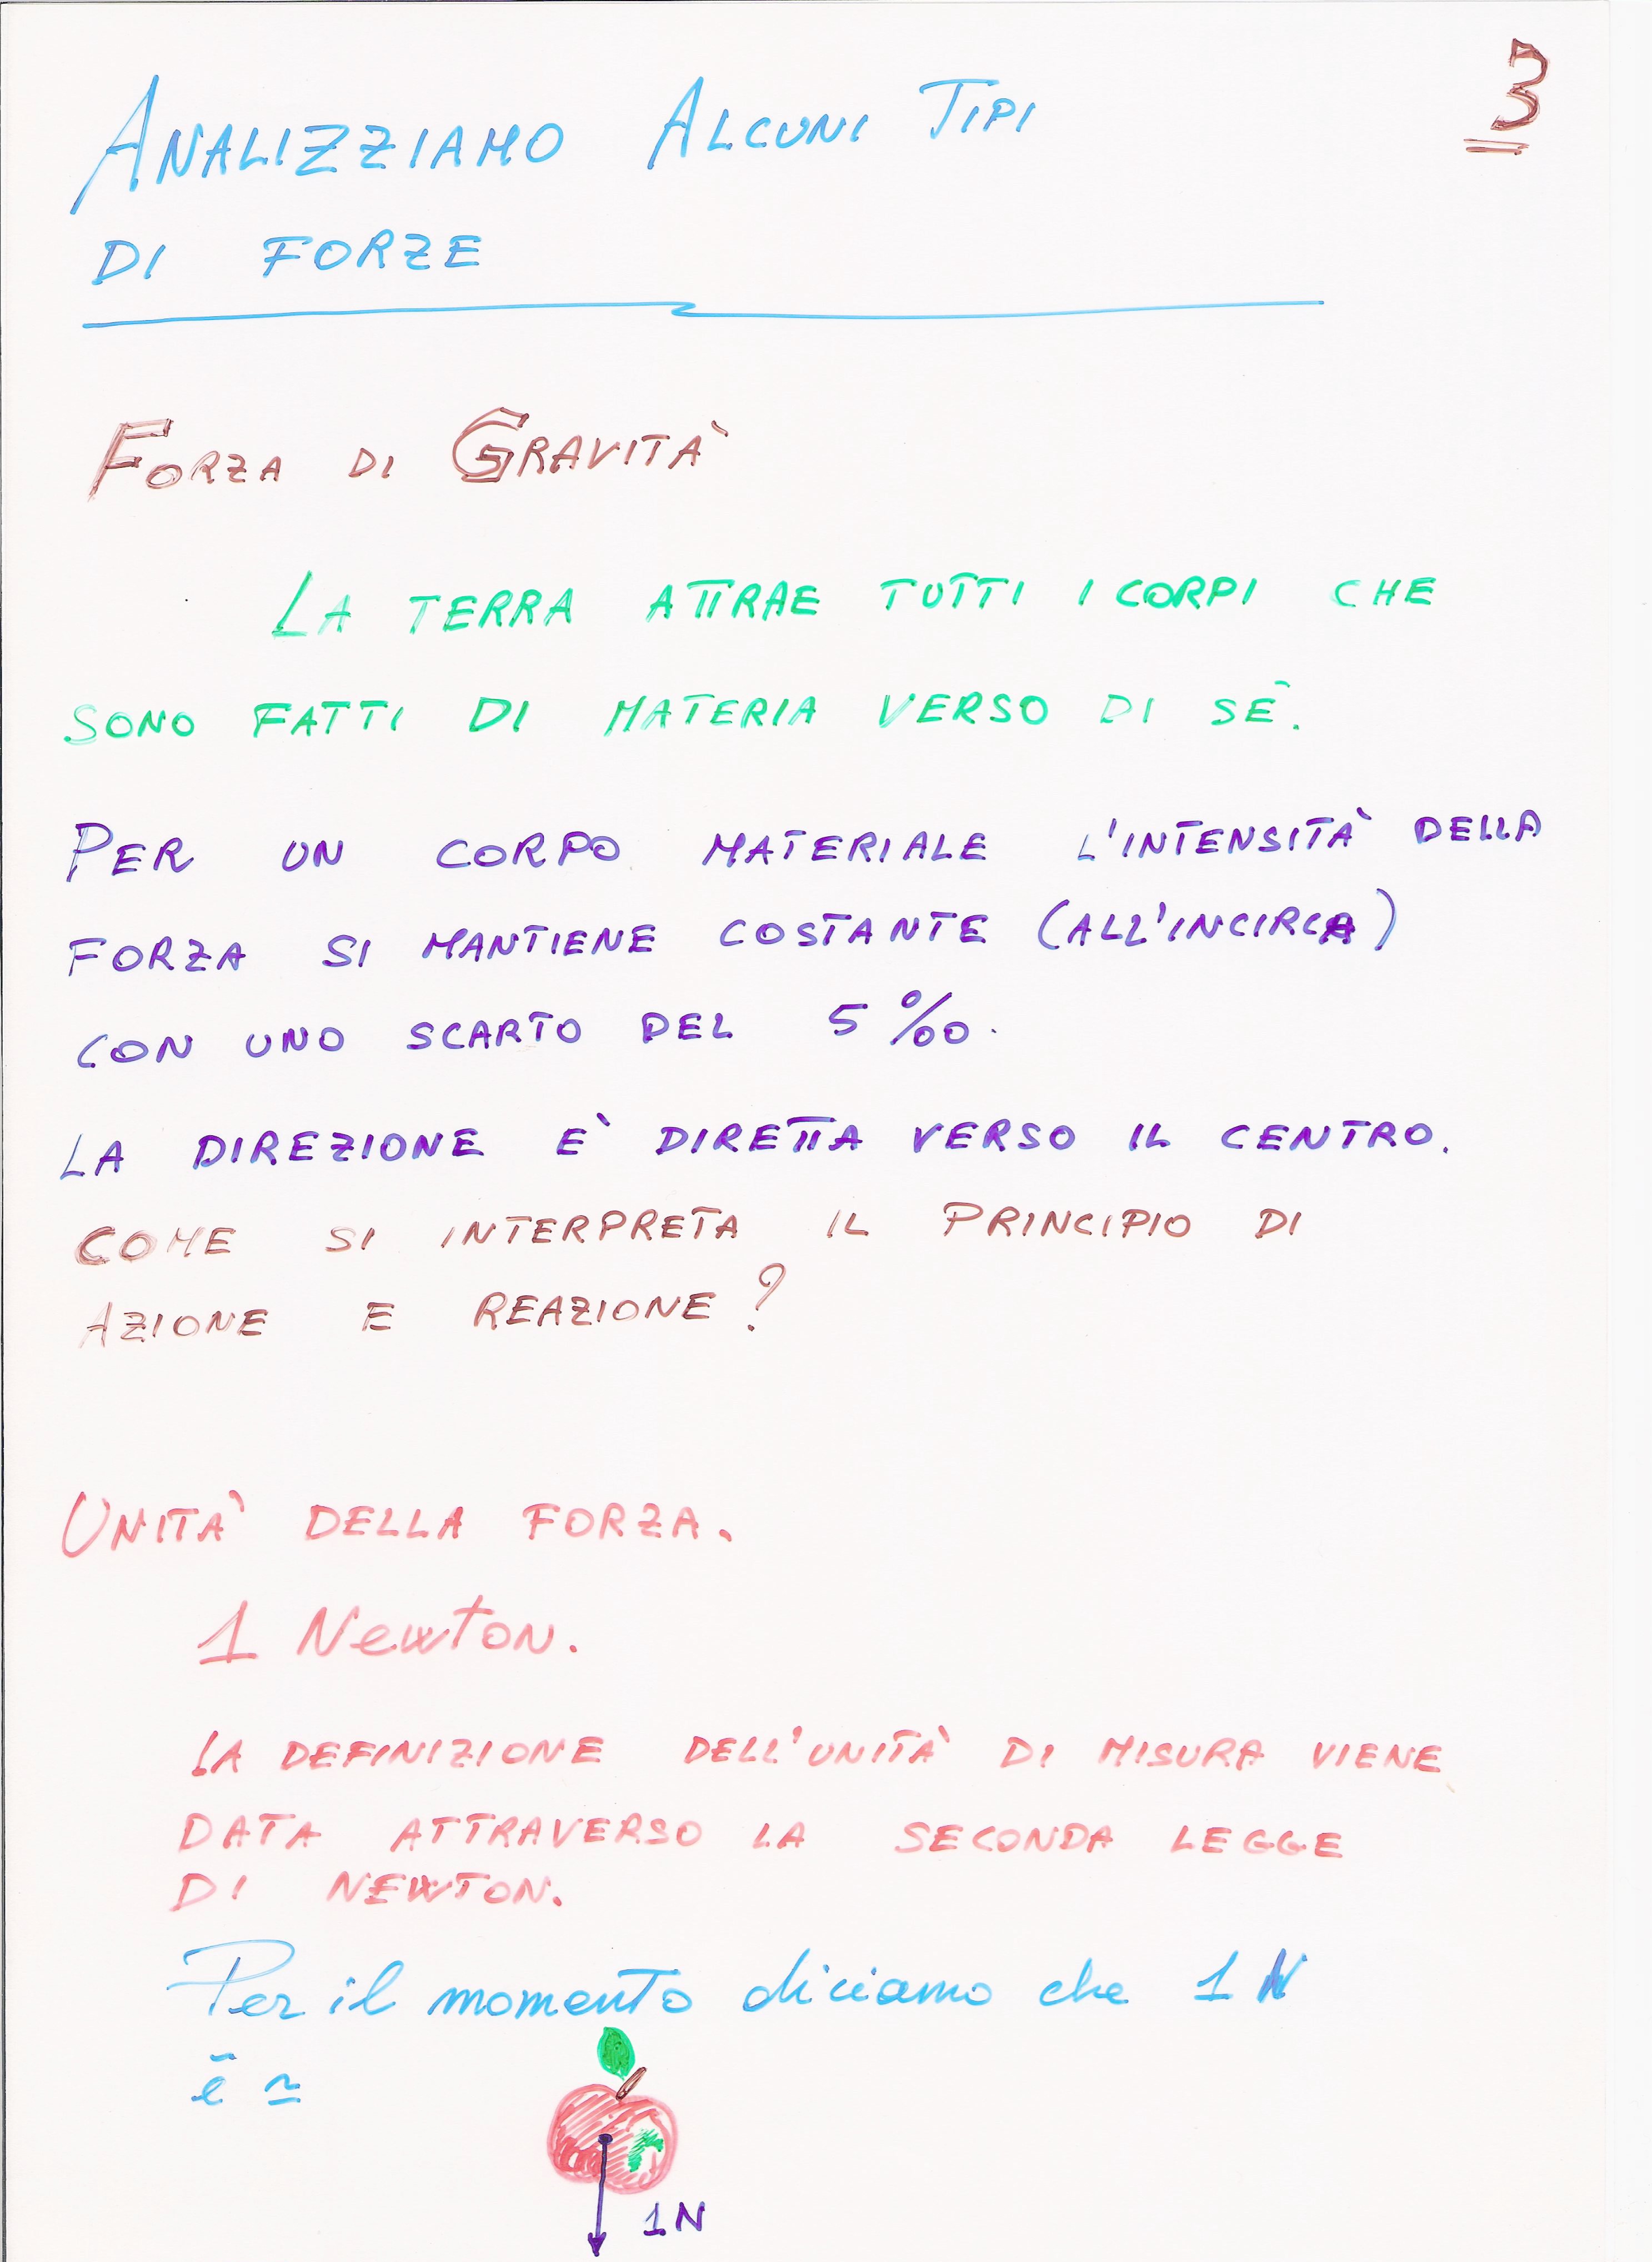 3
ANALIZZIAMO ALCUNI TIPI
DI FORZE
FORZA DI GRAVITÀ
LA TERRA ATTRAE TUTTI I CORPI CHE
SONO FATTI DI MATERIA VERSO DI SÉ.
PER UN CORPO MATERIALE L'INTENSITÀ DELLA
FORZA SI MANTIENE COSTANTE (ALL'INCIRCA)
CON UNO SCARTO DEL 5‰.
LA DIREZIONE E' DIRETTA VERSO IL CENTRO.
COME SI INTERPRETA IL PRINCIPIO DI
AZIONE E REAZIONE?
UNITÀ DELLA FORZA.
1 Newton.
LA DEFINIZIONE DELL'UNITÀ DI MISURA VIENE
DATA ATTRAVERSO LA SECONDA LEGGE
DI NEWTON.
Per il momento diciamo che 1 N
è ≃
1N